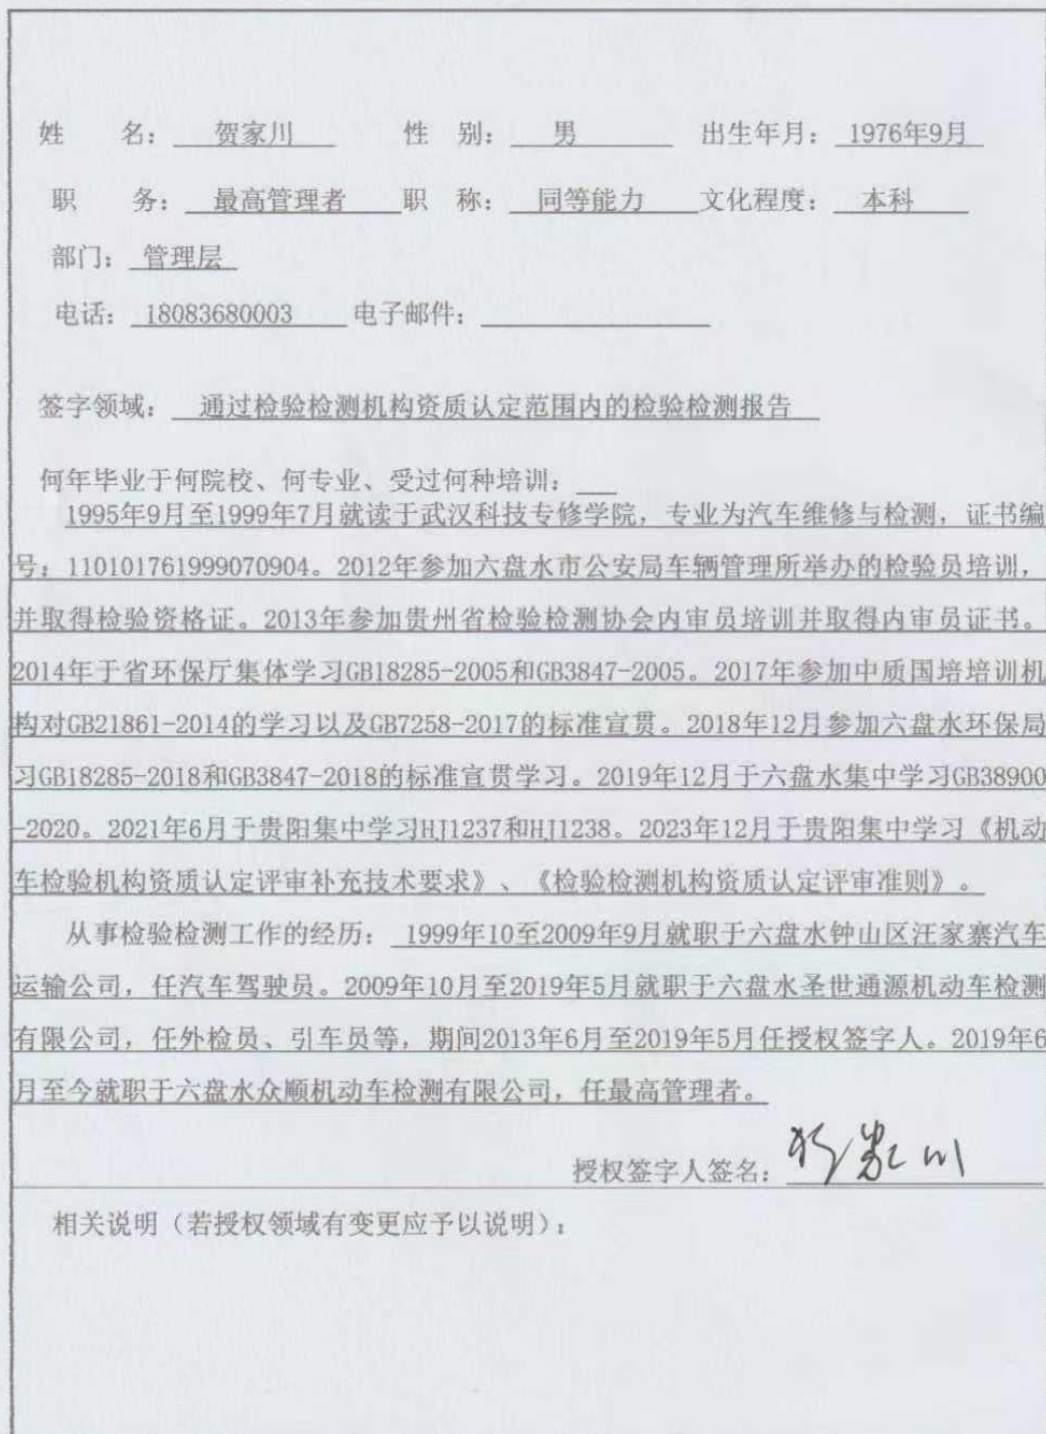 姓 名： 贺家川 性 别： 男 出生年月： 1976年9月
职 务： 最高管理者 职 称： 同等能力 文化程度： 本科
部门： 管理层
电话： 18083680003 电子邮件：
签字领域： 通过检验检测机构资质认定范围内的检验检测报告
何年毕业于何院校、何专业、受过何种培训：
1995年9月至1999年7月就读于武汉科技专修学院，专业为汽车维修与检测，证书编
号：110101761999070904。2012年参加六盘水市公安局车辆管理所举办的检验员培训，
并取得检验资格证。2013年参加贵州省检验检测协会内审员培训并取得内审员证书。
2014年于省环保厅集体学习GB18285-2005和GB3847-2005。2017年参加中质国培培训机
构对GB21861-2014的学习以及GB7258-2017的标准宣贯。2018年12月参加六盘水环保局
习GB18285-2018和GB3847-2018的标准宣贯学习。2019年12月于六盘水集中学习GB38900
-2020。2021年6月于贵阳集中学习HJ1237和HJ1238。2023年12月于贵阳集中学习《机动
车检验机构资质认定评审补充技术要求》、《检验检测机构资质认定评审准则》。
从事检验检测工作的经历： 1999年10至2009年9月就职于六盘水钟山区汪家寨汽车
运输公司，任汽车驾驶员。2009年10月至2019年5月就职于六盘水圣世通源机动车检测
有限公司，任外检员、引车员等，期间2013年6月至2019年5月任授权签字人。2019年6
月至今就职于六盘水众顺机动车检测有限公司，任最高管理者。
授权签字人签名：贺家川
相关说明（若授权领域有变更应予以说明）：